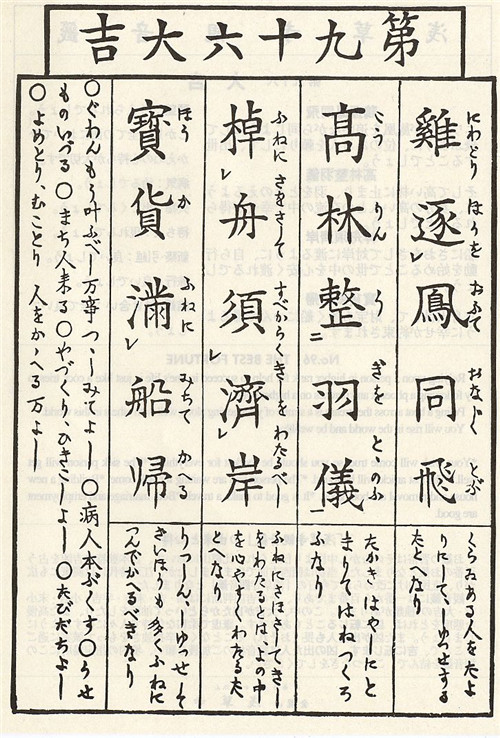 第九十六大吉
にわとり ほうを おふて おなじく とぶ
雞逐鳳同飛
レ
くらゐある人をたよ
りにしてしゆつせする
たとへなり
こうりん うぎを とゝのふ
高林整羽儀
二 一
たかきはやしにと
まりてはねつくろ
ふなり
ふねに さほさして すべからくきしを わたるべし
棹舟須濟岸
レ レ レ
ふねにさほさしてきし
をわたるとは、よの中
を心やすくわたるた
とへなり
ほうか ふねに みちて かへる
寶貨滿船帰
レ
りつしんしゆつせして
ざいほうも多くふねに
つんでかへるべきなり
○ぐわんもう叶ふべし 万事つゝしみてよし ○病人本ぶくす ○うせ
ものいづる ○まち人来る ○やづくり、ひきこしよし ○たびだちよし
○よめとり、むことり 人をかゝへる 万よし